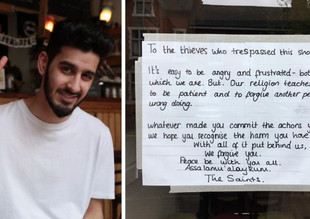 To the thieves who trespassed this sho
It's easy to be angry and frustrated - bot
which we are. But. Our religion teaches
to be patient and to forgive another pe
wrong doing.
whatever made you commit the actions y
we hope you recognise the harm you have
With all of it put behind us,
We forgive you.
Peace be with you all.
Assalamu alaykum.
The Saints.